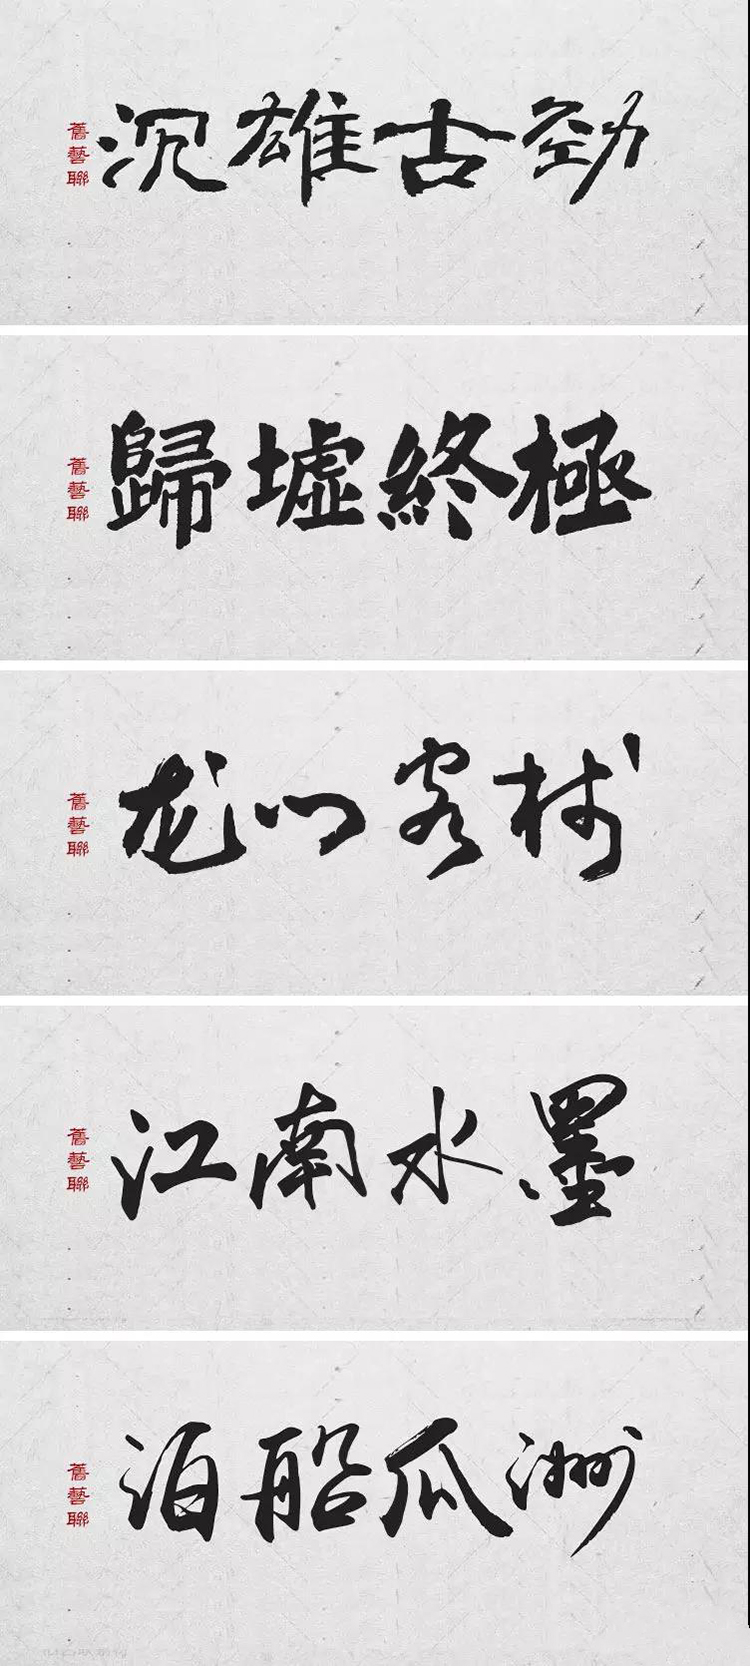 舊藝聯
沉雄古勁
舊藝聯
歸墟終極
舊藝聯
龙门客栈
舊藝聯
江南水墨
舊藝聯
泊船瓜洲